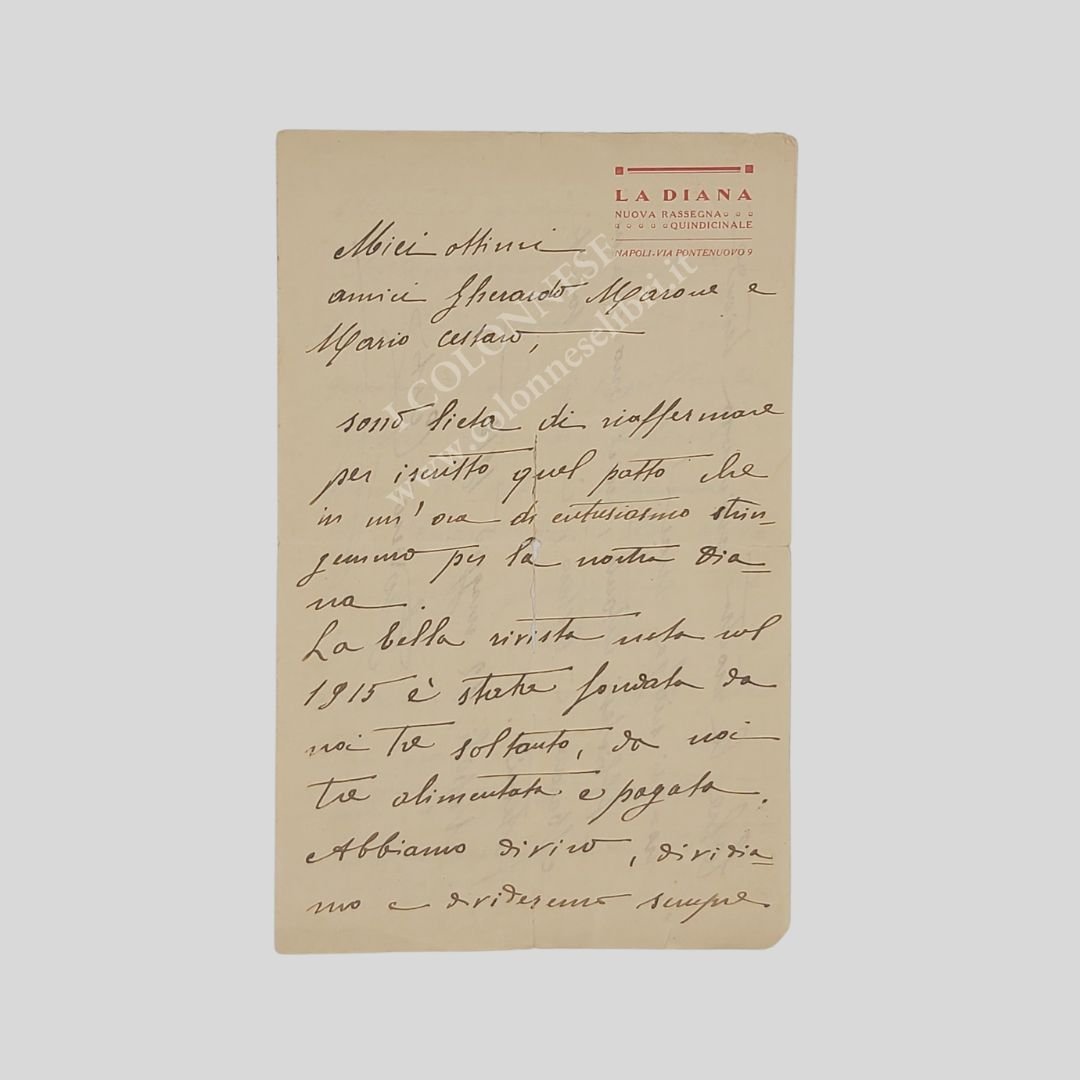 LA DIANA
NUOVA RASSEGNA
QUINDICINALE
NAPOLI - VIA PONTENUOVO 9
Miei ottimi
amici Gherardo Marone e
Mario Cestaro,
sono lieta di riaffermare
per iscritto quel patto che
in un'ora di entusiasmo strin-
gemmo per la nostra Dia=
na.
La bella rivista nata nel
1915 è stata fondata da
noi tre soltanto, da noi
tre alimentata e pagata.
Abbiamo diviso, dividia=
mo e divideremo sempre
I COLONNESE
www.colonneselibri.it